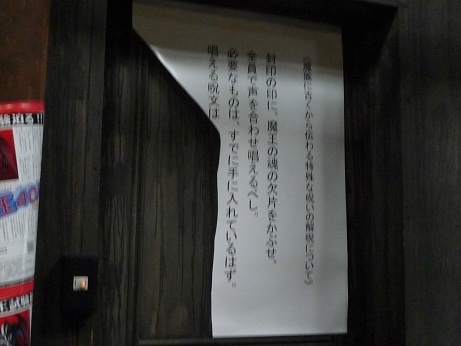 《魔族に古くから伝わる特殊な呪いの解呪について》
封印の印に、魔王の魂の欠片をかぶせ、
全員で声を合わせ唱えるべし。
必要なものは、すでに手に入れているはず。
唱える呪文は
強迫る!!
王40
王試験